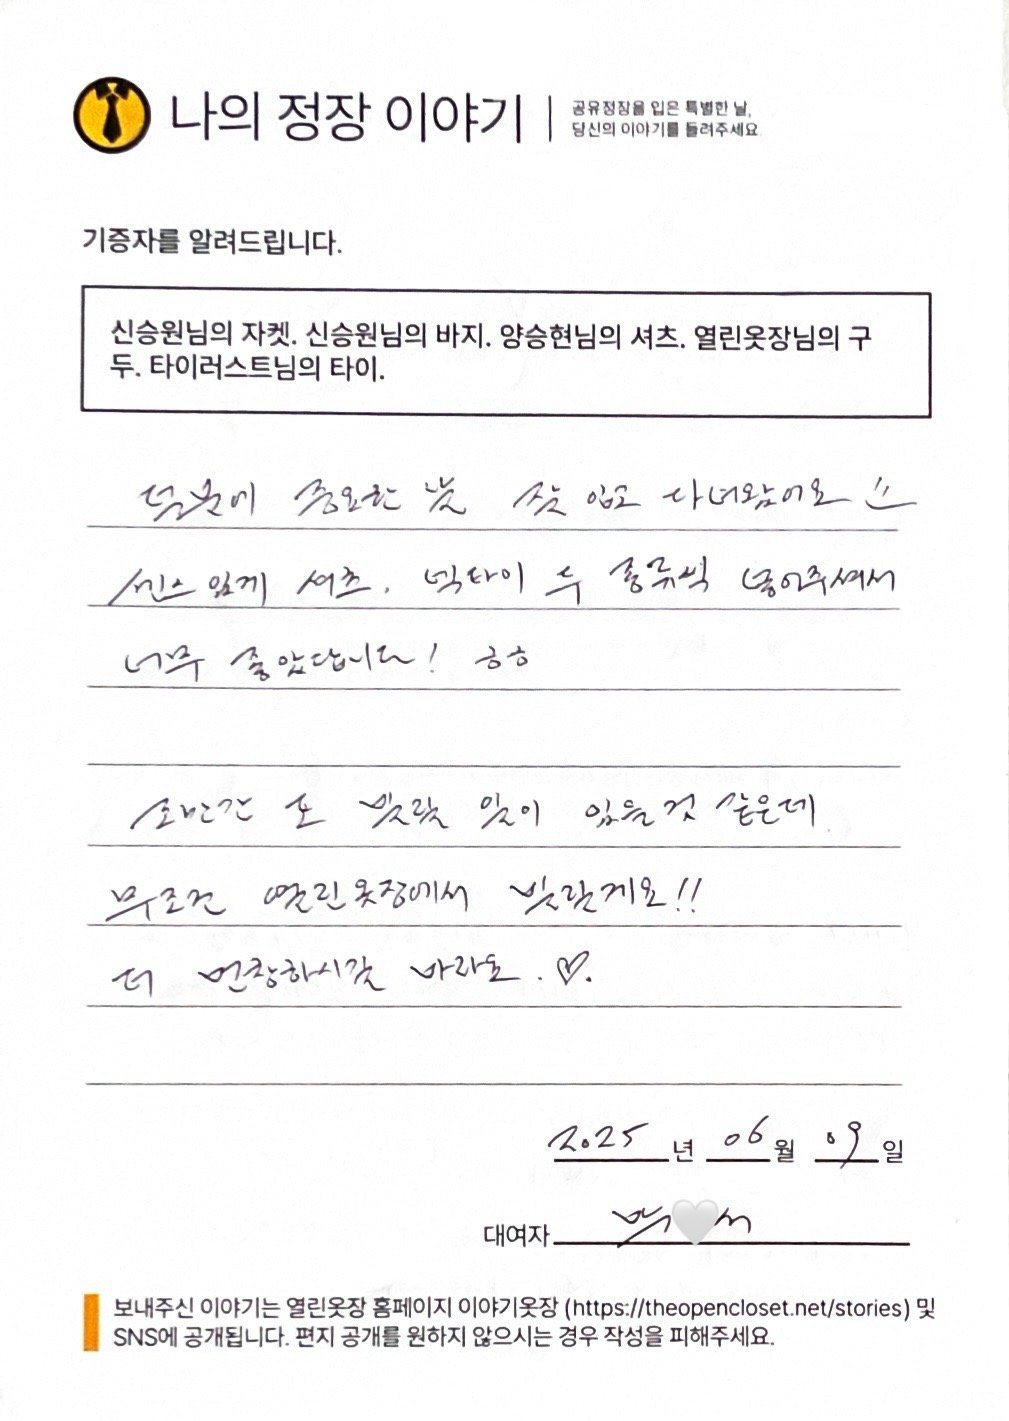 나의 정장 이야기
공유정장을 입은 특별한 날,
당신의 이야기를 들려주세요.
기증자를 알려드립니다.
신승원님의 자켓. 신승원님의 바지. 양승현님의 셔츠. 열린옷장님의 구
두. 타이러스트님의 타이.
덕분에 중요한 날 잘 입고 다녀왔어요
센스있게 셔츠, 넥타이 두 종류씩 넣어주셔서
너무 좋았답니다! ㅎㅎ
조만간 또 빌릴 일이 있을것 같은데
무조건 열린옷장에서 빌릴게요!!
더 번창하시길 바라요. ♡.
2025년 06월 09일
대여자 박 서
보내주신 이야기는 열린옷장 홈페이지 이야기옷장 (https://theopencloset.net/stories) 및
SNS에 공개됩니다. 편지 공개를 원하지 않으시는 경우 작성을 피해주세요.